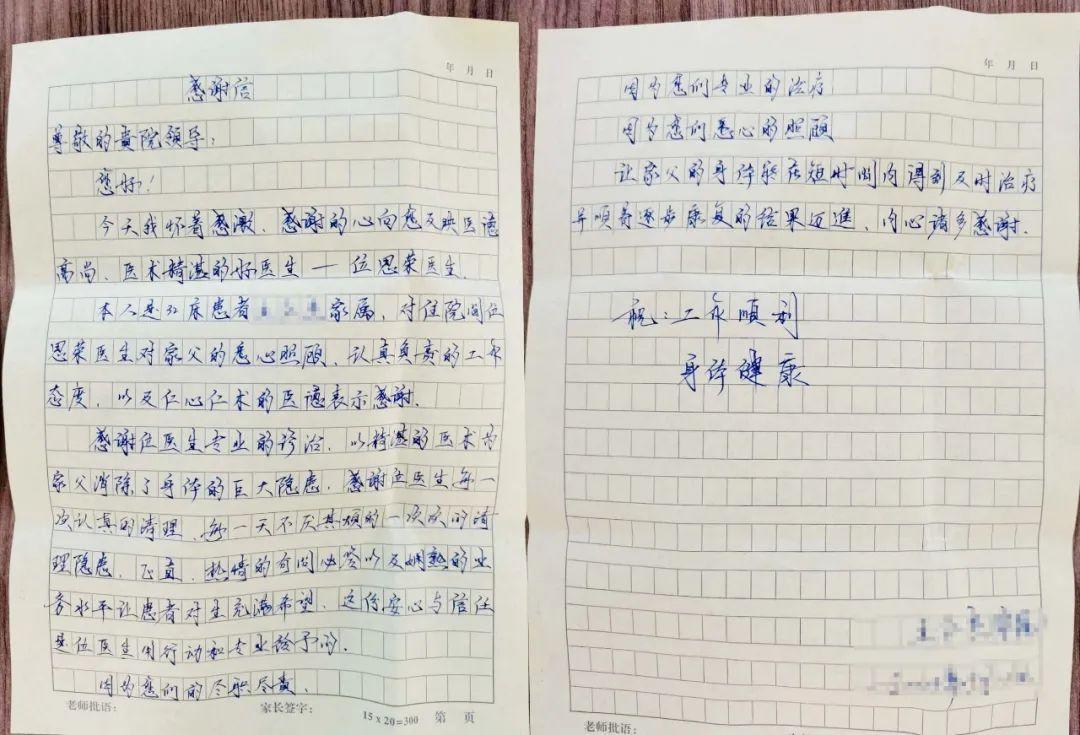 年 月 日
感谢信
尊敬的贵院领导：
您好！
今天我怀着感激、感谢的心向您反映医德
高尚、医术精湛的好医生——位恩荣医生。
本人是32床患者 家属，对住院间位
恩荣医生对家父的悉心照顾、认真负责的工作
态度，以及仁心仁术的医德表示感谢。
感谢位医生专业的诊治，以精湛的医术为
家父消除了身体的巨大隐患，感谢位医生每一
次认真的清理、每一天不厌其烦的一次次的清
理隐患，正直、热情的有问必答以及娴熟的业
务水平让患者对生充满希望，这份安心与信任
是位医生用行动和专业给予的。
因为您们的尽职尽责、
老师批语： 家长签字： 15 x 20=300 第 页
年 月 日
因为您们专业的治疗
因为您们悉心的照顾
让家父的身体能在短时间内得到及时治疗
并顺着逐步康复的结果迈进，内心诸多感谢。
祝：工作顺利
身体健康
老师批语：